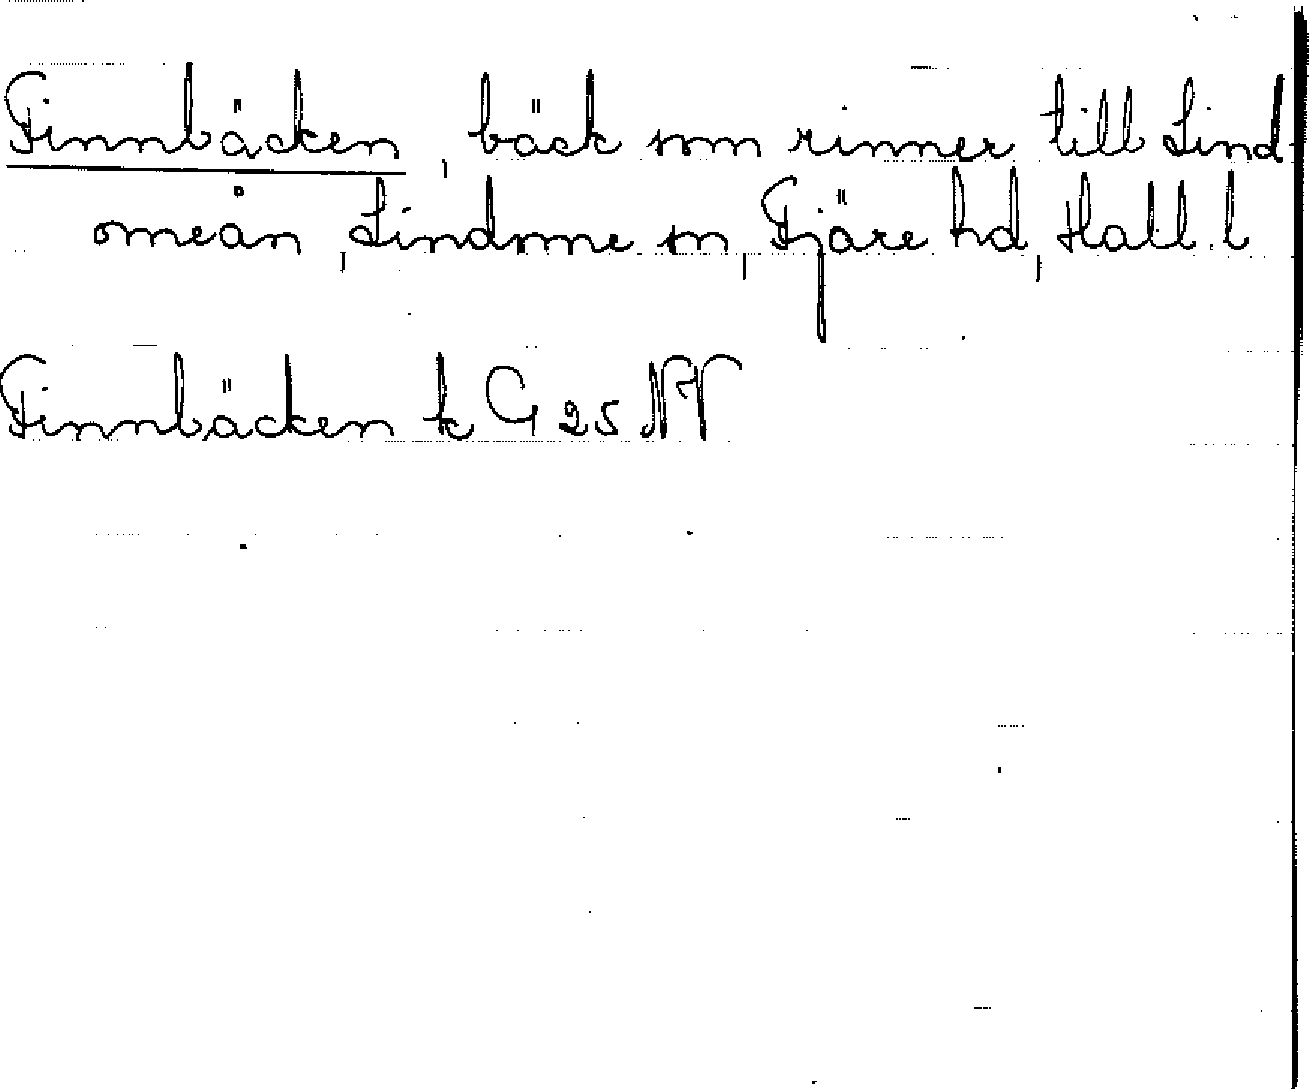 Finnbäcken, bäck som rinner till Lind-
omeån, Lindome sn, Fjäre hd, Hall. l
Finnbäcken k G 25 NV